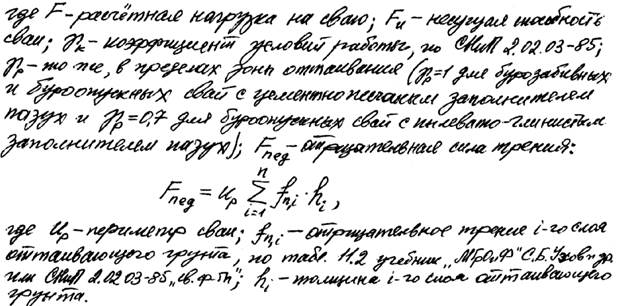 где F - расчётная нагрузка на сваю; Fи - несущая способность
сваи; γк - коэффициент условий работы, по СНиП 2.02.03-85;
γр - то же, в пределах зоны оттаивания (γр=1 для бурозабивных
и буроопускных свай с цементнопесчаным заполнителем
пазух и γр=0,7 для буроопускных свай с пылевато-глинистым
заполнителем пазух); Fnед - отрицательная сила трения:
Fnед = uр ∑ⁿᵢ₌₁ fn,i · hi,
где uр - периметр сваи; fn,i - отрицательное трение i-го слоя
оттаивающего грунта, по табл. 11.2 учебник „МГОиФ" С.Б.Ухов и др.
или СНиП 2.02.03-85 „Св. ф-ты"; hi - толщина i-го слоя оттаивающего
грунта.